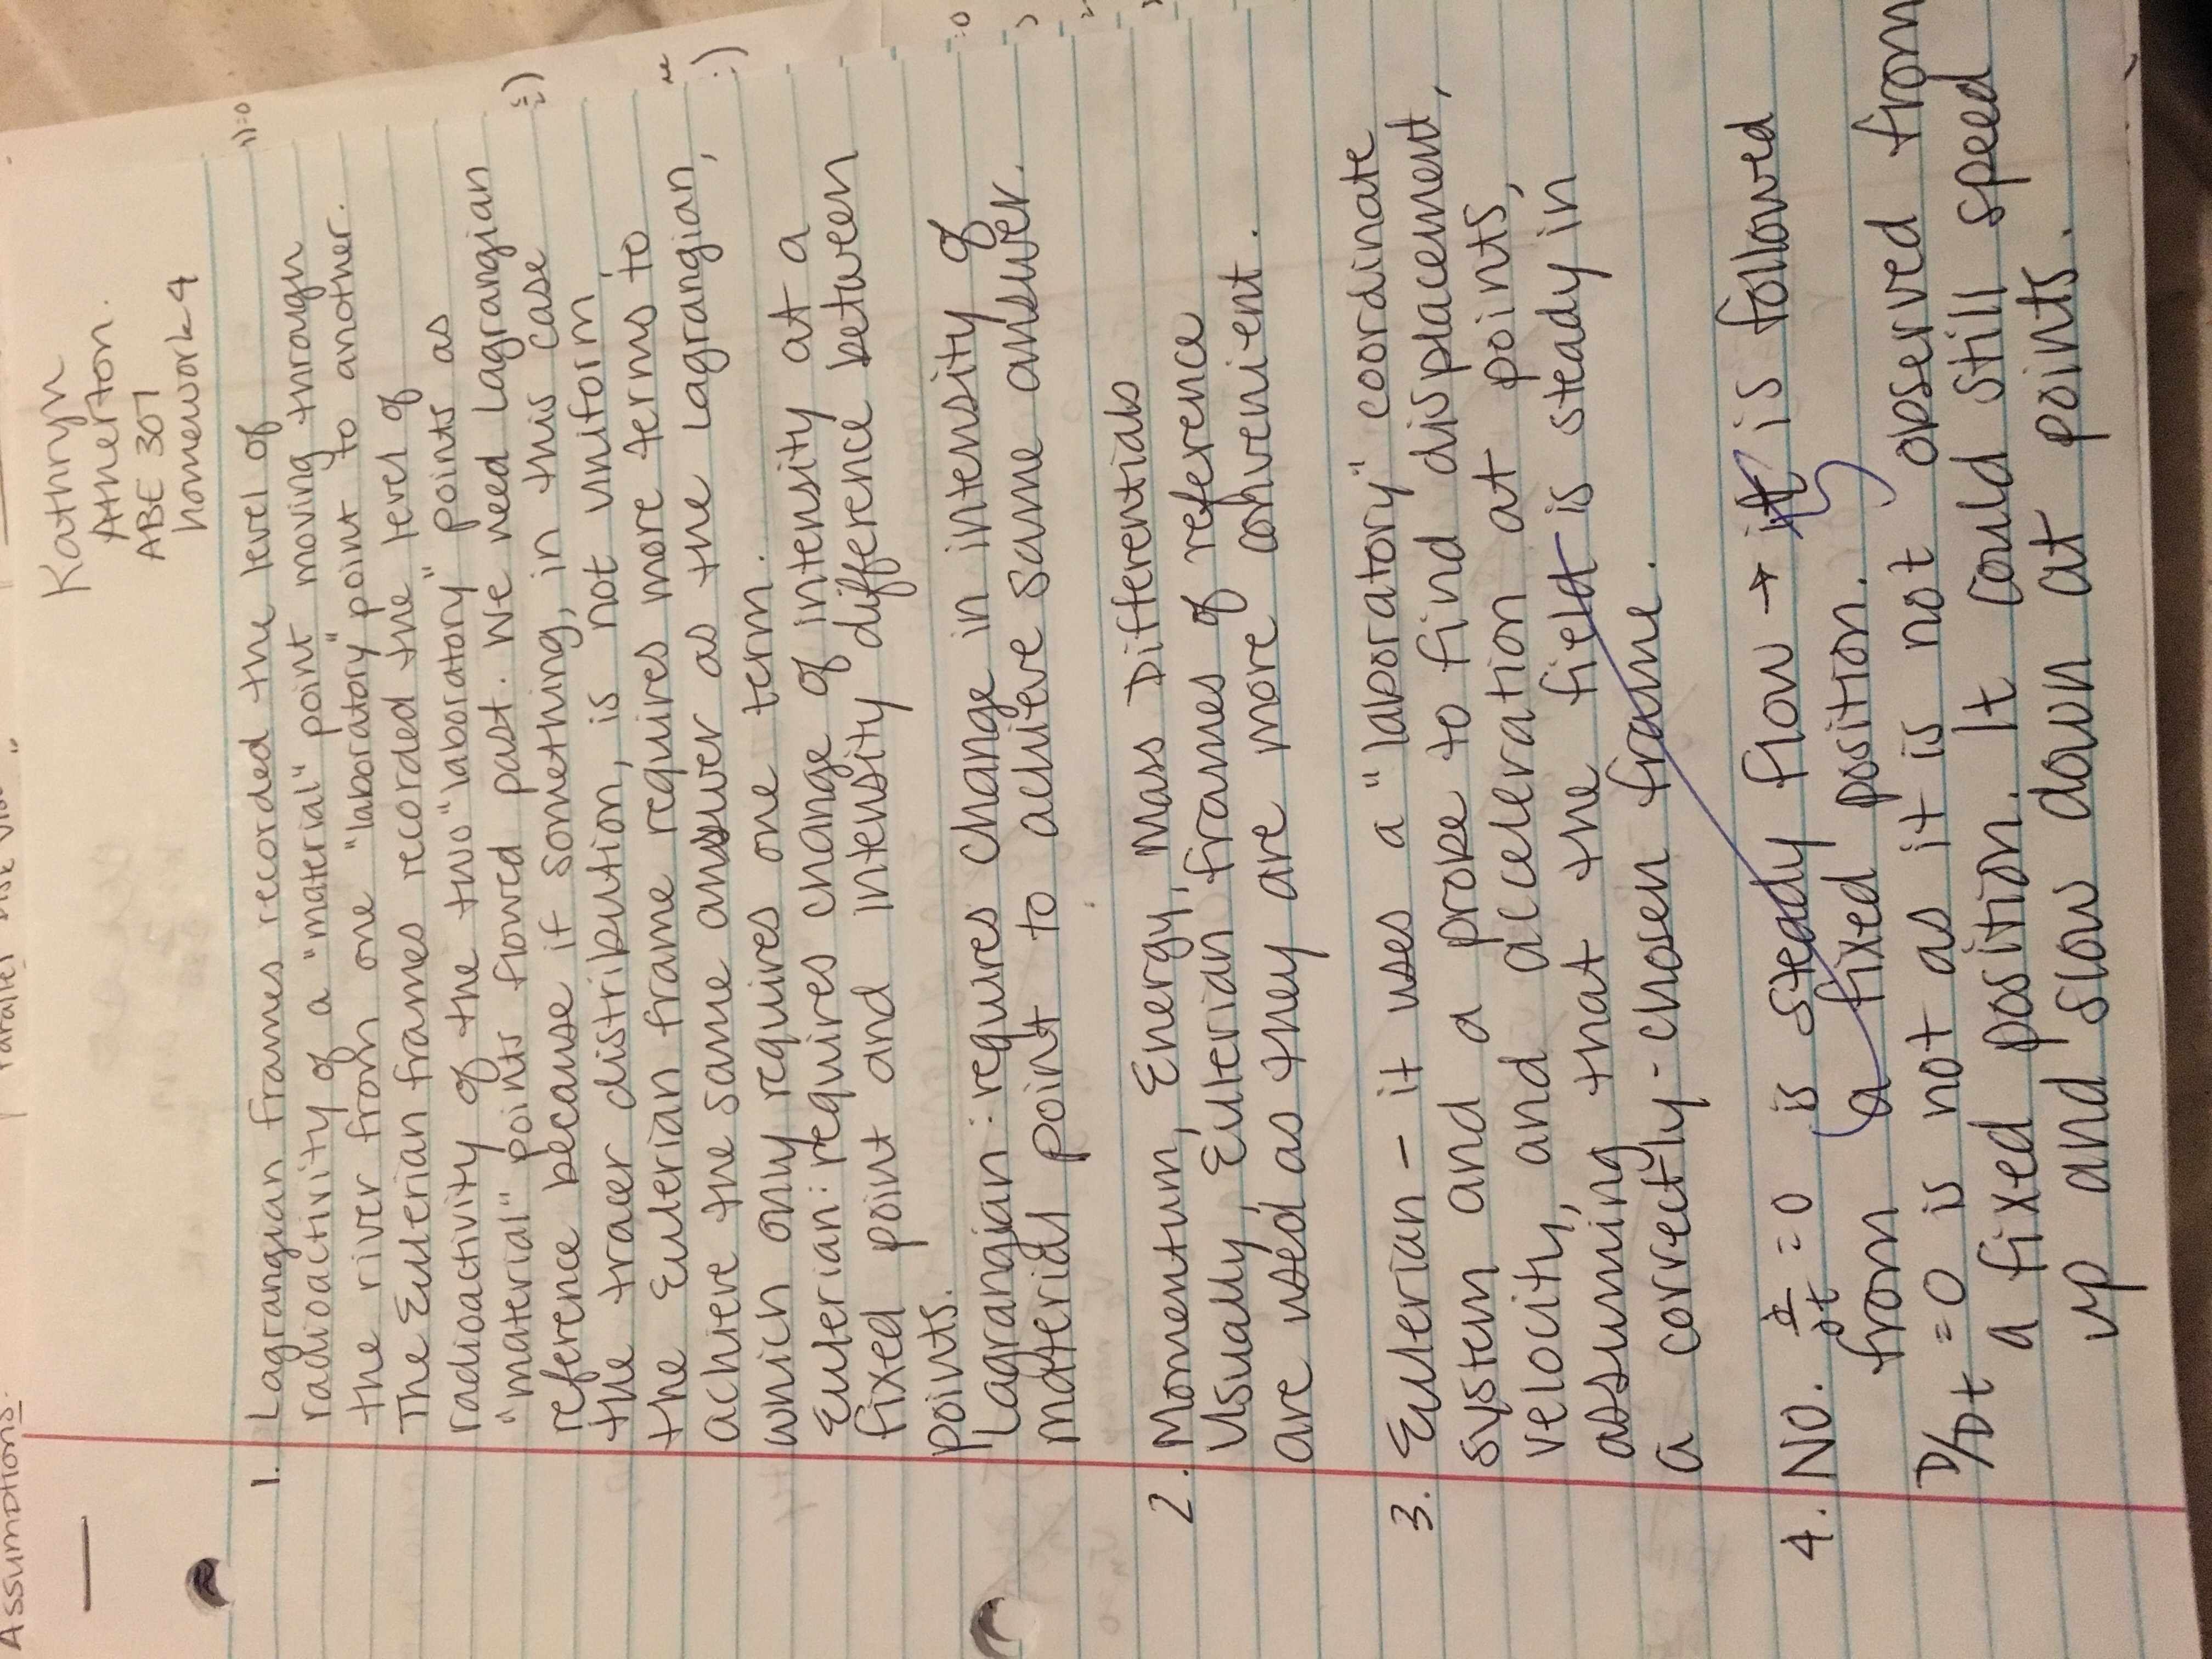 Assumptions.
Parallel Disk
Kathryn
Atherton.
ABE 307
homework 4
1. Lagrangian frames recorded the level of
radioactivity of a "material" point moving through
the river from one "laboratory" point to another.
The Eulerian frames recorded the level of
radioactivity of the two "laboratory" points as
"material" points flowed past. We need Lagrangian
reference because if something, in this case
the tracer distribution, is not uniform,
the Eulerian frame requires more terms to
achieve the same answer as the Lagrangian,
which only requires one term.
Eulerian: requires change of intensity at a
fixed point and intensity difference between
points.
Lagrangian: requires change in intensity of
material point to achieve same answer.
2. Momentum, Energy, Mass Differentials
Usually, Eulerian frames of reference
are used as they are more convenient.
3. Eulerian – it uses a "laboratory" coordinate
system and a probe to find displacement,
velocity, and acceleration at points,
assuming that the field is steady in
a correctly-chosen frame.
4. NO. ∂/∂t = 0 is steady flow → it is followed
from a fixed position.
D/Dt = 0 is not as it is not observed from
a fixed position. It could still speed
up and slow down at points.